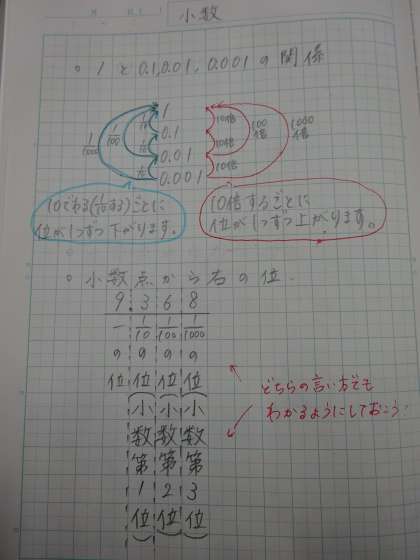 小数
○ 1と0.1,0.01,0.001の関係
1
0.1
0.01
0.001
1/10
1/10
1/10
1/100
1/1000
10倍
10倍
10倍
100倍
1000倍
10でわる(1/10する)ごとに
位が1つずつ下がります。
10倍するごとに
位が1つずつ上がります。
○ 小数点から右の位.
9.368
一の位
1/10の位(小数第1位)
1/100の位(小数第2位)
1/1000の位(小数第3位)
どちらの言い方でも
わかるようにしておこう!